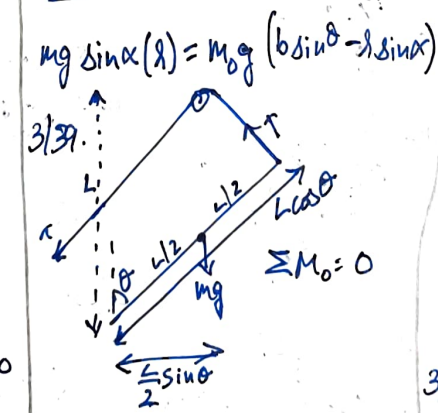 mg sinα(r) = m₀g (b sinθ - r sinα)
3/39.
L
T
T
L/2
L cosθ
L/2
θ
mg
ΣM₀ = 0
L/2 sinθ
3